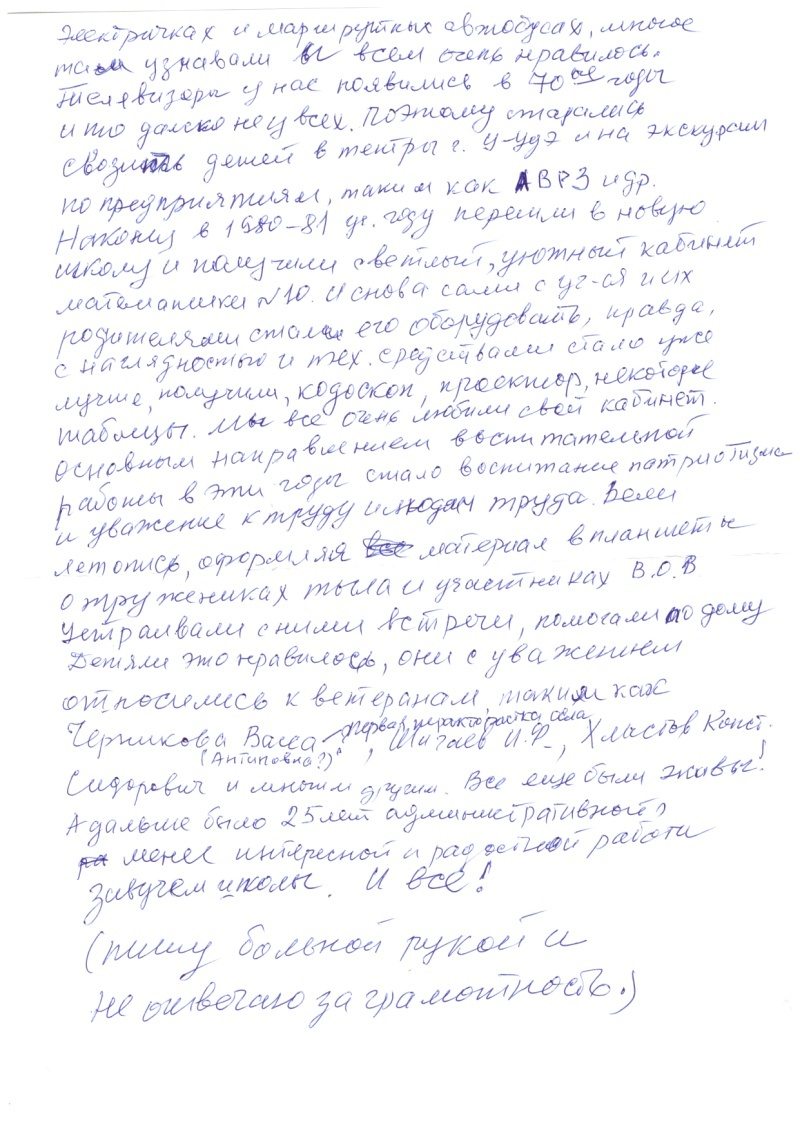 электричках и маршрутных автобусах, многое
там узнавали и всем очень нравилось.
Телевизоры у нас появились в 70ые годы
и то далеко не у всех. Поэтому старались
свозить детей в тетры г. У-Удэ и на экскурсии
по предприятиям, таким как АВРЗ и др.
Наконец в 1980-81 уч. году перешли в новую
школу и получили светлый, уютный кабинет
математики №10. И снова сами с уч-ся и их
родителями стали его оборудовать, правда,
с наглядностью и тех. средствами стало уже
лучше, получили, кодоскоп, проектор, некоторые
таблицы. Мы все очень любили свой кабинет.
Основным направлением воспитательной
работы в эти годы стало воспитание патриотизма
и уважение к труду и людям труда. Вели
летопись, оформляя материал в планшеты
о тружениках тыла и участниках В.О.В
Устраивали с ними встречи, помогали по дому
Детям это нравилось, они с уважением
относились к ветеранам, таким как
первая трактористка села
Черникова Васса, Шигаев И.Ф., Хластов Конст.
(Антиповна?)
Сидорович и многим другим. Все еще были живы!
А дальше было 25 лет административной,
менее интересной и радостной работы
завучем школы. И всё!
(пишу больной рукой и
не отвечаю за грамотность.)